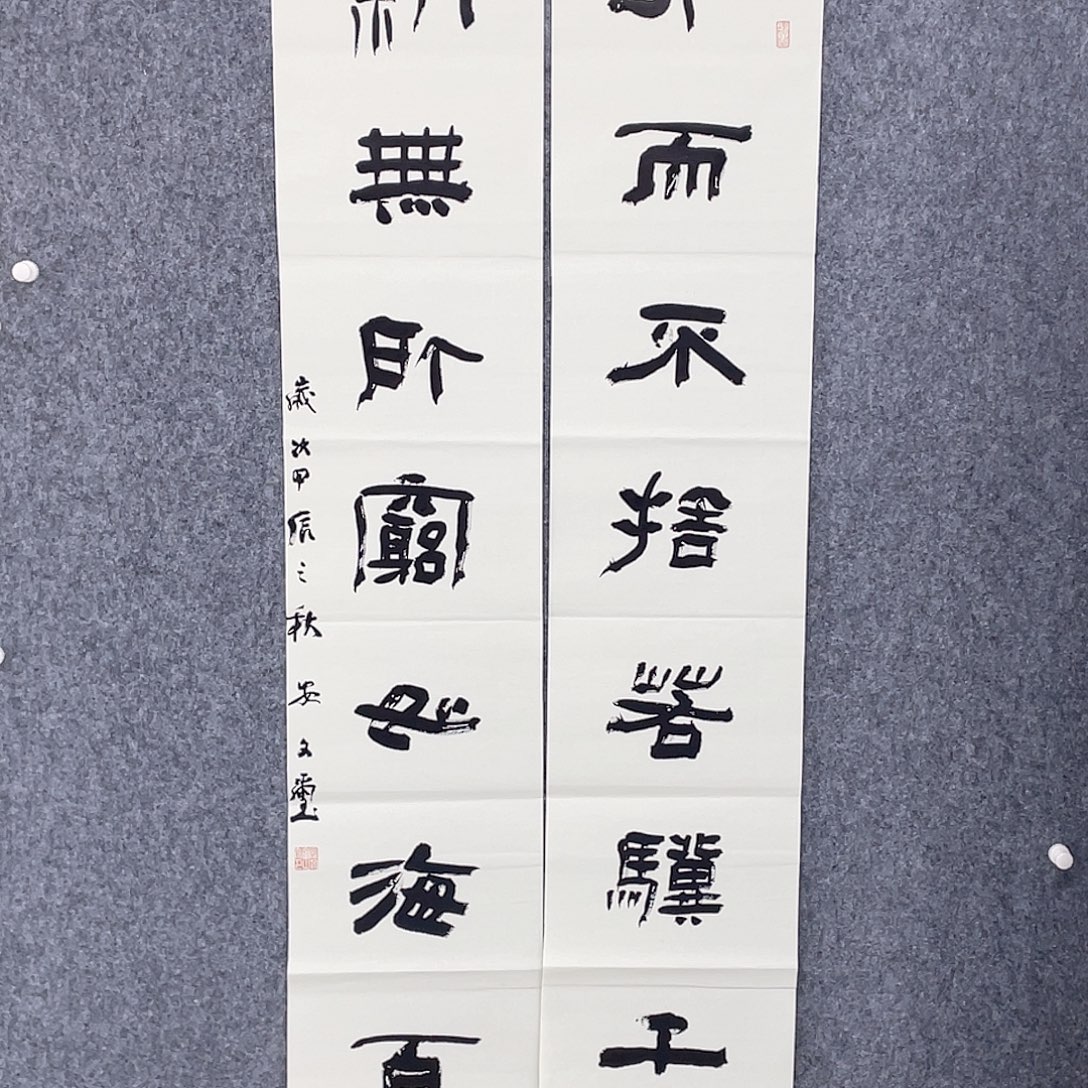 而不捨若驥千
無所窮如海百
歲次甲辰之秋安文璽